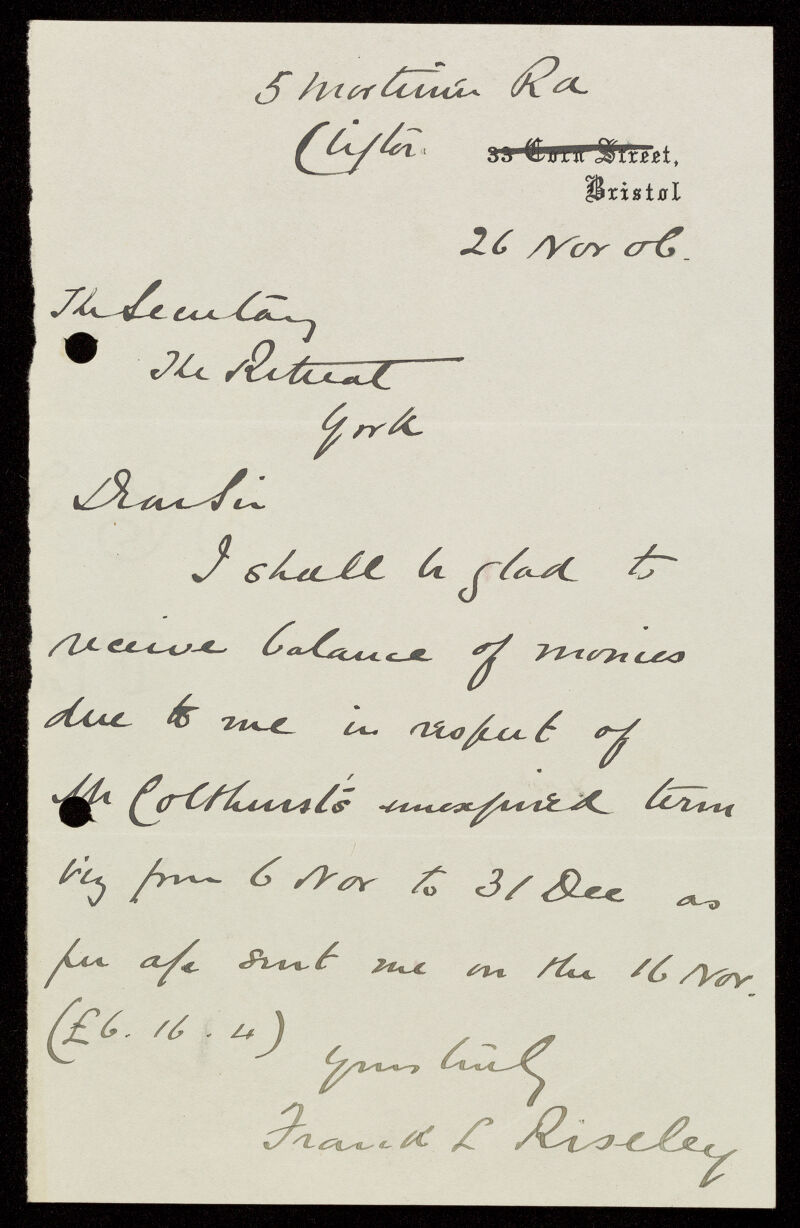 5 Mortimer Rd
Clifton
33 Corn Street,
Bristol
26 Nov 06.
The Secretary
The Retreat
York
Dear Sir
I shall be glad to
receive balance of monies
due to me in respect of
Mr Colthurst's unexpired term
viz from 6 Nov to 31 Dec as
per a/c sent me on the 16 Nov.
(£6. 16. 4)
Yours truly
Frank L Riseley